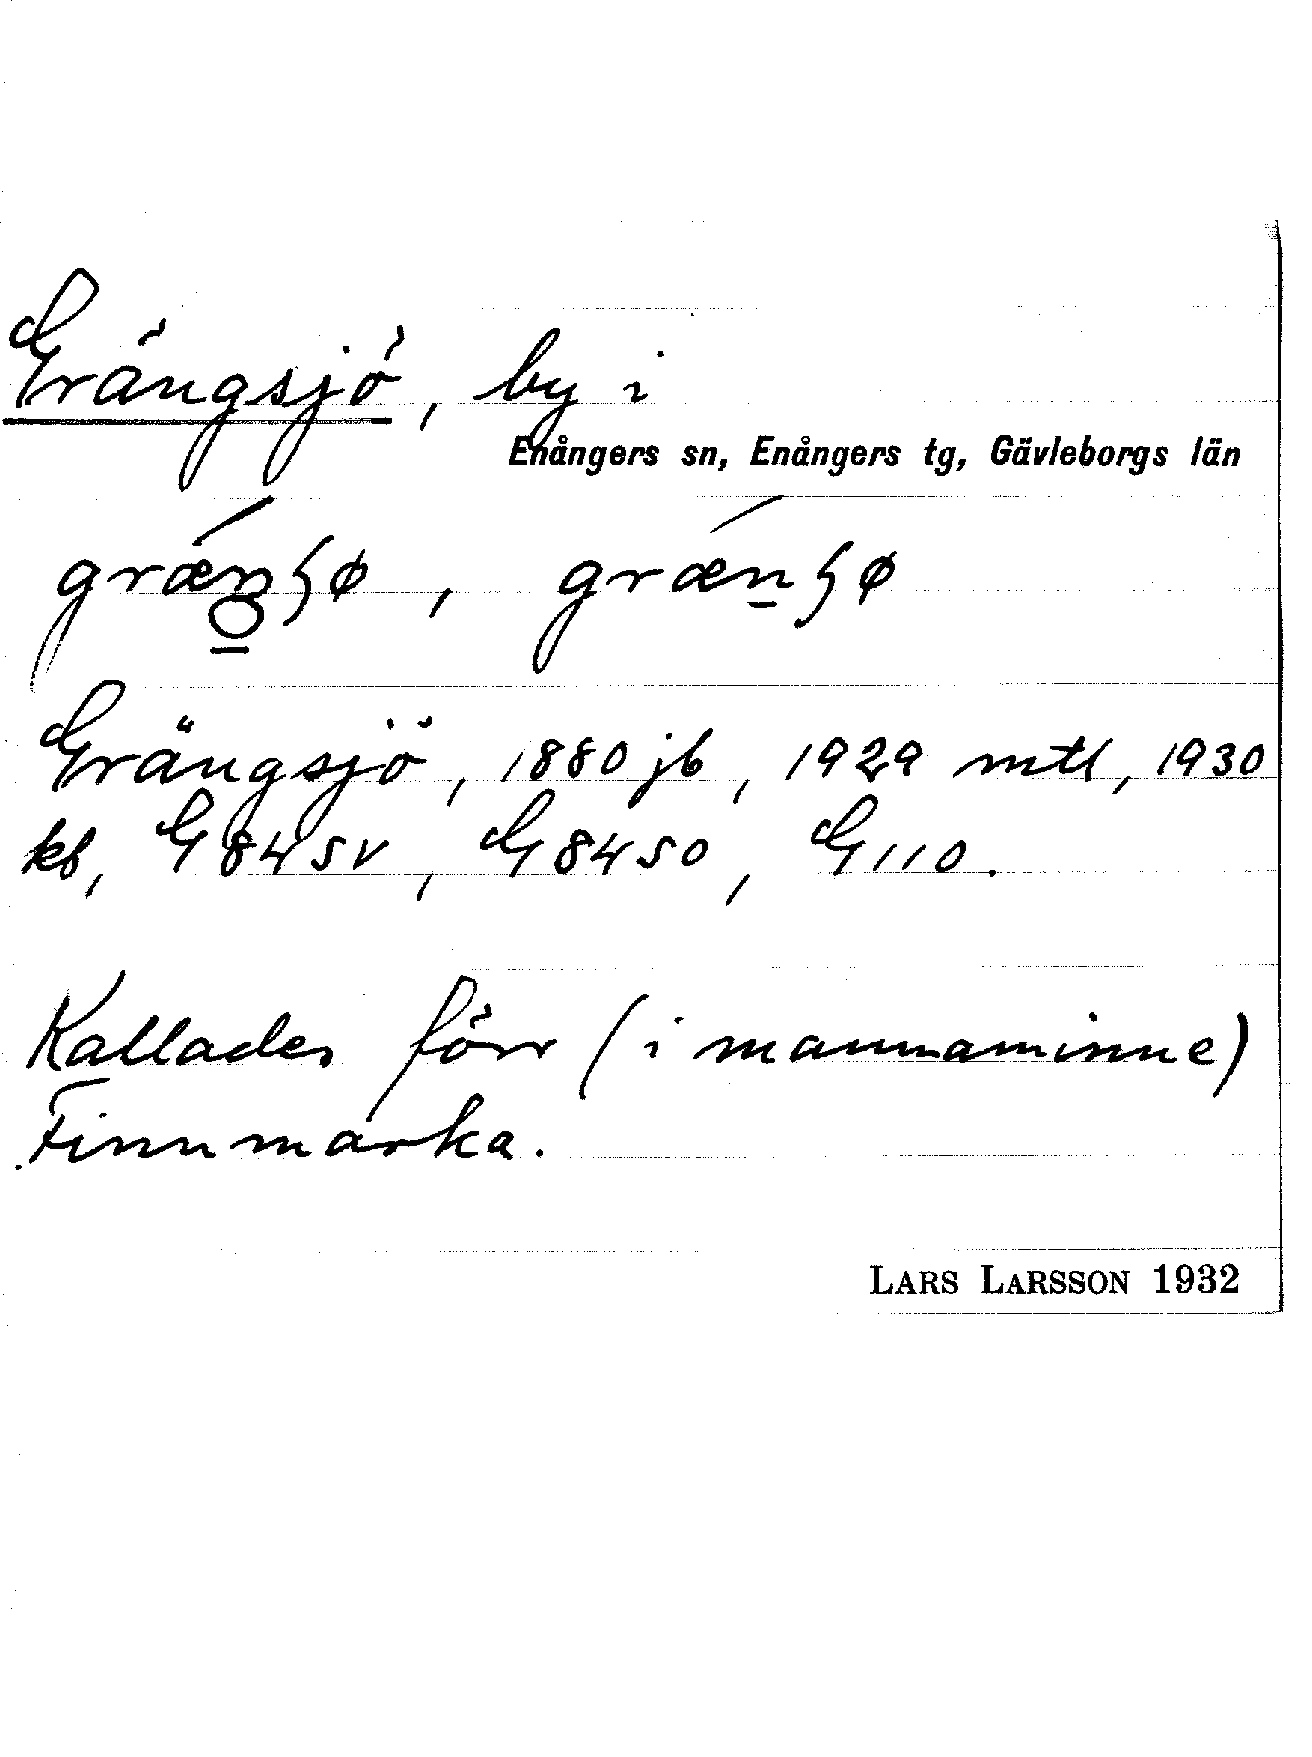 Grängsjö, by i
Enångers sn, Enångers tg, Gävleborgs län
Grängsjö, 1880 jb, 1929 mtl, 1930
kb, G 84 SV, G 84 SO, G 110.
Kallades förr (i mannaminne)
Finnmarka.
LARS LARSSON 1932